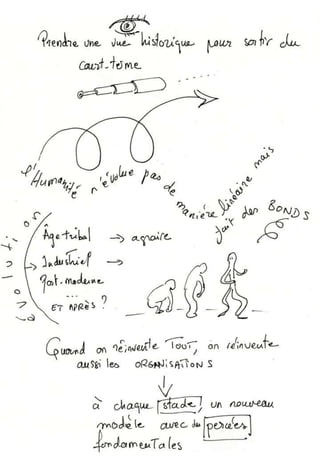 Prendre une vue historique pour sortir du
court-terme
l'Humanité n'évolue pas de manière linéaire mais
fait des BONDS
évolution
Âge tribal → agraire
→ Industriel →
Post-moderne
...
ET APRÈS ?
Quand on réinvente TOUT, on réinvente
aussi les ORGANISATIONS
à chaque stade, un nouveau
modèle avec des percées
fondamentales